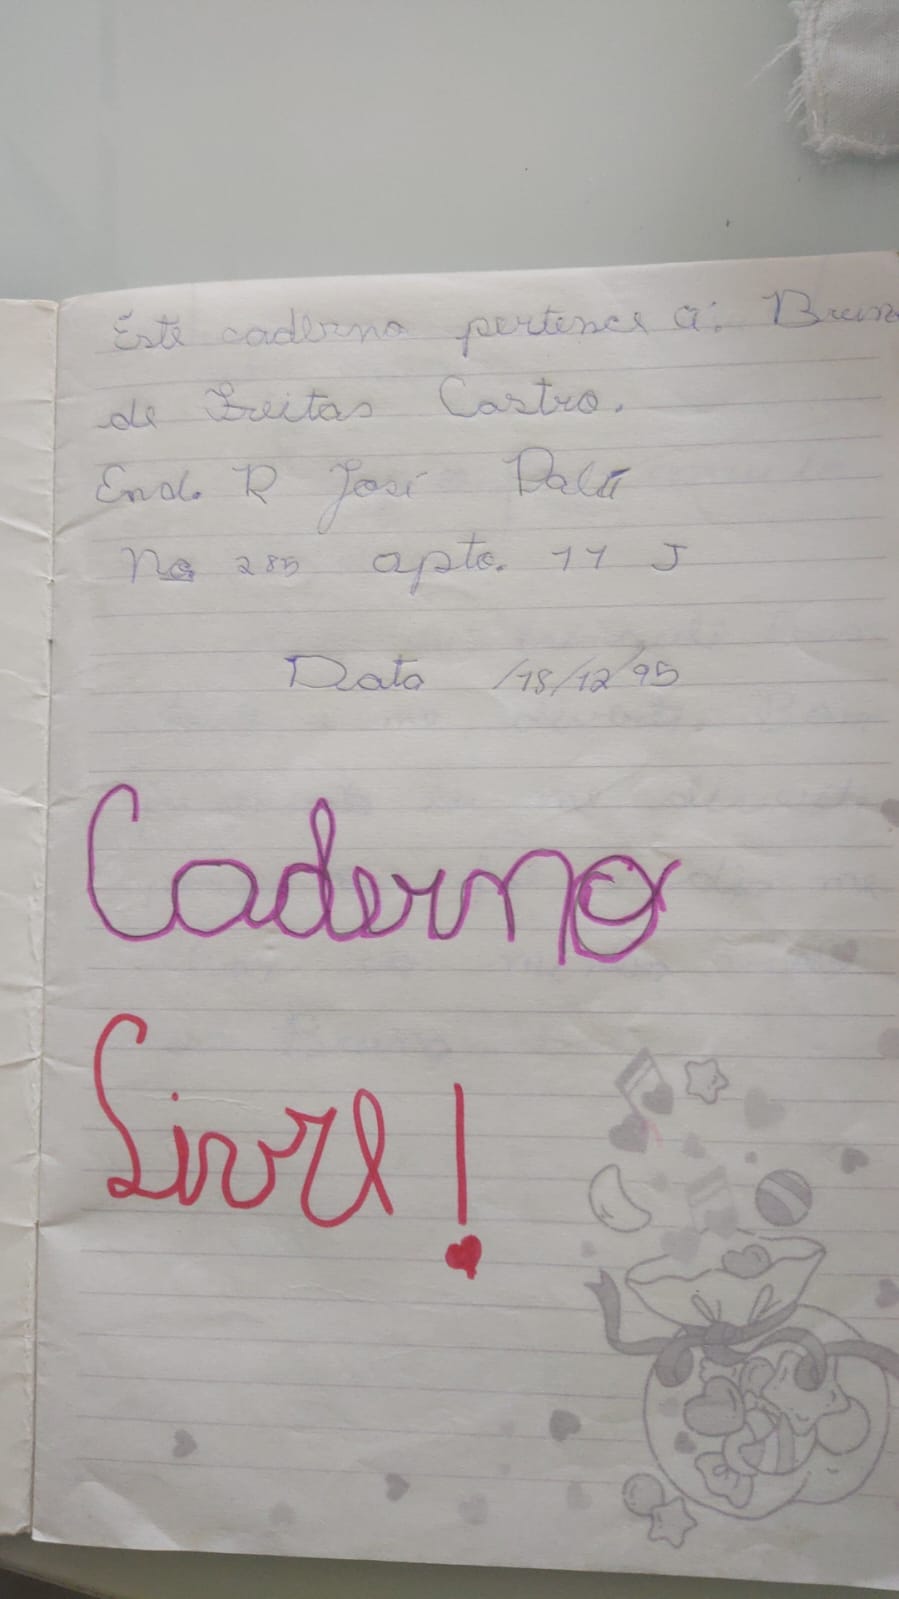 Este caderno pertence a: Brun
de Freitas Castro.
End. R José
No 285 apto. 11 J
Data /18/12/95
Caderno
Livre!